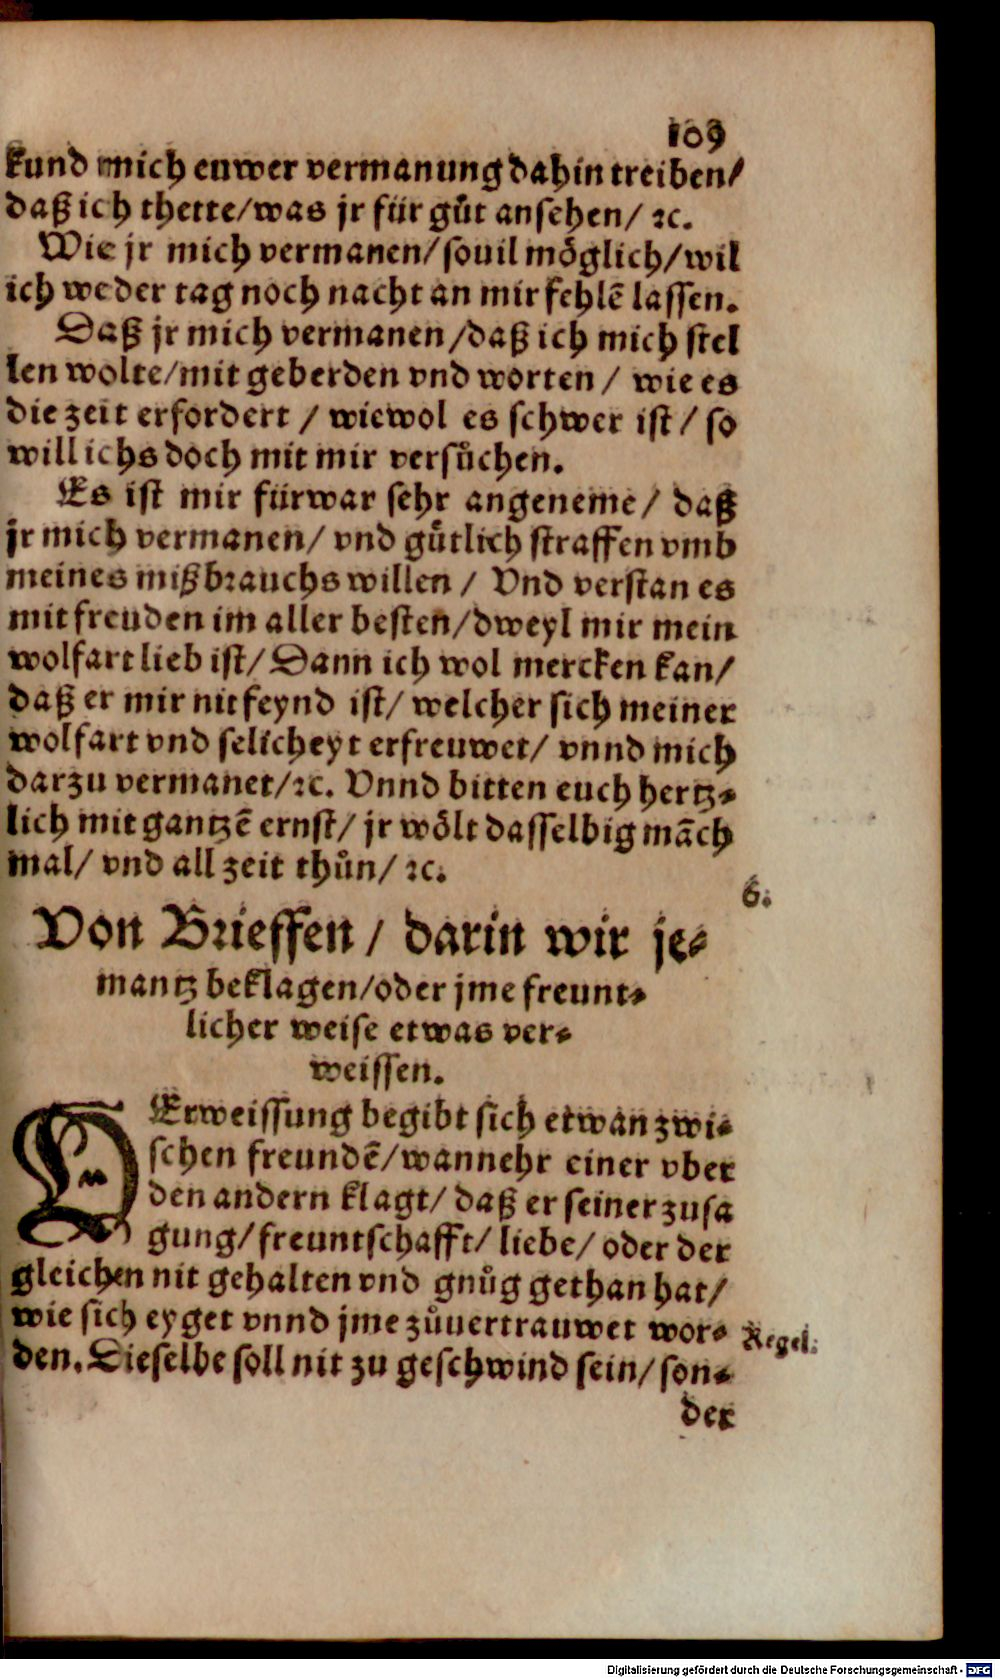 109
kund mich euwer vermanung dahin treiben/
daß ich thette/was jr für gůt ansehen/ ꝛc.
Wie jr mich vermanen/souil möglich/wil
ich weder tag noch nacht an mir fehlē lassen.
Daß jr mich vermanen/daß ich mich stel
len wolte/mit geberden vnd worten/ wie es
die zeit erfordert / wiewol es schwer ist/ so
will ichs doch mit mir versůchen.
Es ist mir fürwar sehr angeneme/ daß
jr mich vermanen/ vnd gůtlich straffen vmb
meines mißbrauchs willen / Vnd verstan es
mit freuden im aller besten/dweyl mir mein
wolfart lieb ist/ Dann ich wol mercken kan/
daß er mir nit feynd ist/ welcher sich meiner
wolfart vnd selicheyt erfreuwet/ vnnd mich
darzu vermanet/ꝛc. Vnnd bitten euch hertz-
lich mit gantzē ernst/ jr wölt dasselbig māch
mal/ vnd all zeit thůn/ ꝛc.
6.
Von Brieffen / darin wir je-
mantz beklagen/oder jme freunt-
licher weise etwas ver-
weissen.
VErweissung begibt sich etwan zwi-
schen freundē/wannehr einer vber
den andern klagt/ daß er seiner zusa
gung/freuntschafft/ liebe/ oder der
gleichen nit gehalten vnd gnůg gethan hat/
wie sich eyget vnnd jme zůuertrauwet wor-
Regel.
den. Dieselbe soll nit zu geschwind sein/ son-
der
Digitalisierung gefördert durch die Deutsche Forschungsgemeinschaft - DFG